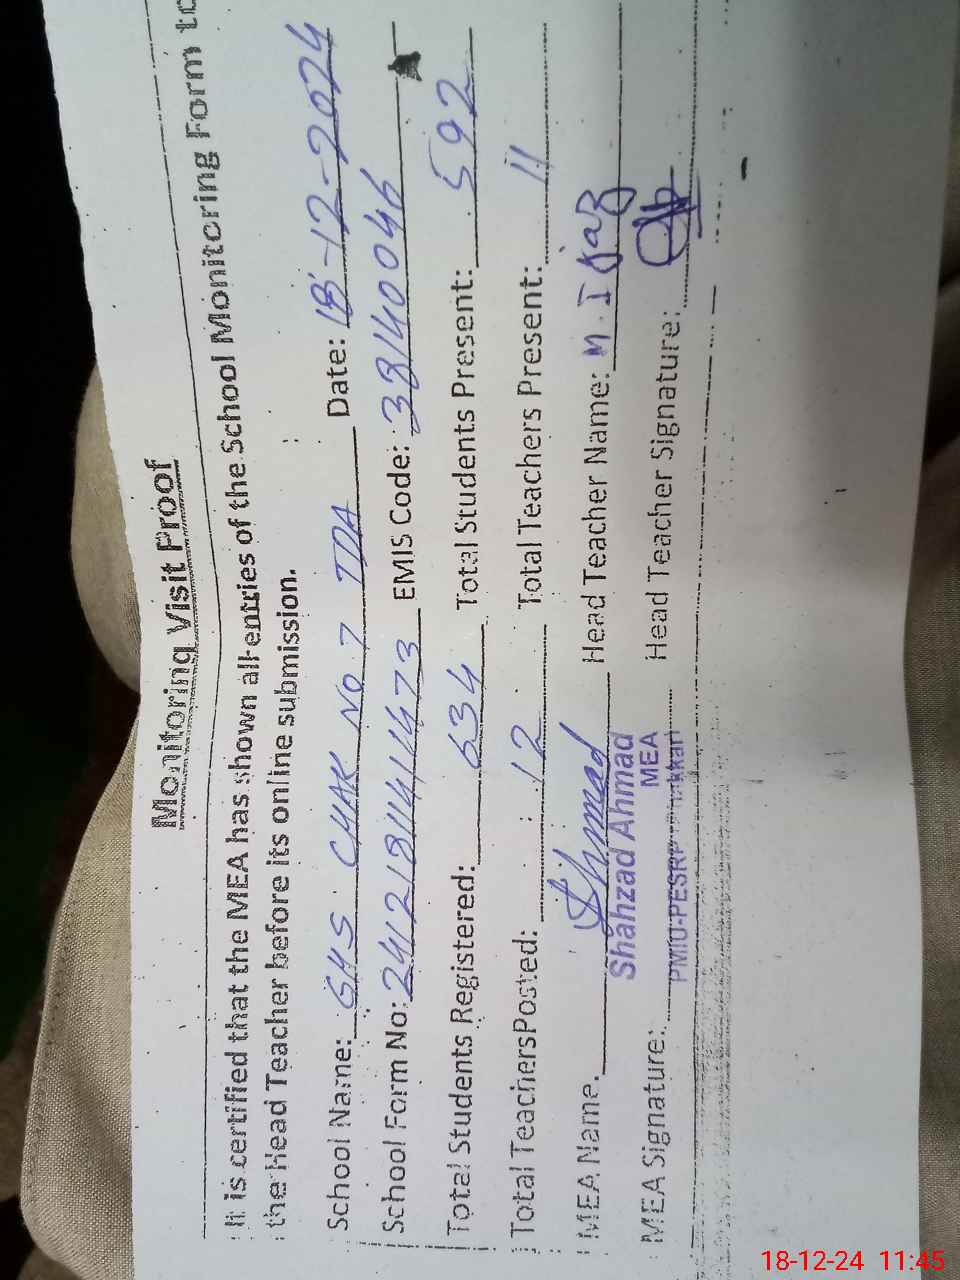 Monitoring Visit Proof
It is certified that the MEA has shown all entries of the School Monitoring Form to
the Head Teacher before its online submission.
School Name: GHS CHAK No 7 TDA Date: 18-12-2024
School Form No: EMIS Code: 38140046
Total Students Registered: 634 Total Students Present: 592
Total Teachers Posted: 12 Total Teachers Present: 11
MEA Name. Ahmad Head Teacher Name: M. Ijaz
Shahzad Ahmad
MEA
MEA Signature: Head Teacher Signature:
PMIU-PESRP
18-12-24 11:45